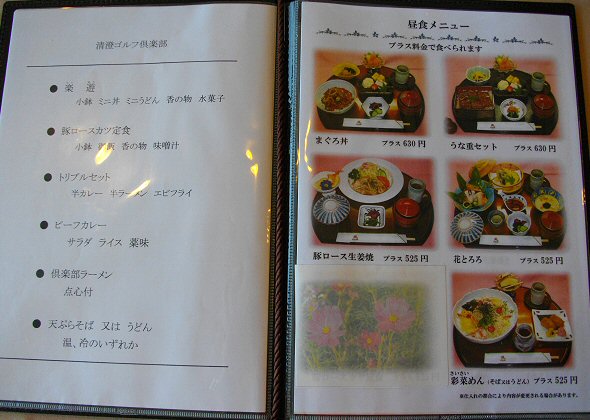 清澄ゴルフ倶楽部
● 楽 遊
小鉢 ミニ丼 ミニうどん 香の物 水菓子
● 豚ロースカツ定食
小鉢 御飯 香の物 味噌汁
● トリプルセット
半カレー 半ラーメン エビフライ
● ビーフカレー
サラダ ライス 薬味
● 倶楽部ラーメン
点心付
● 天ぷらそば 又は うどん
温、冷のいずれか
昼食メニュー
プラス料金で食べられます
まぐろ丼 プラス 630円
うな重セット プラス 630円
豚ロース生姜焼 プラス 525円
花とろろ プラス 525円
さいさい
彩菜めん(そば又はうどん) プラス 525円
※仕入れの都合により内容が変更される場合があります。